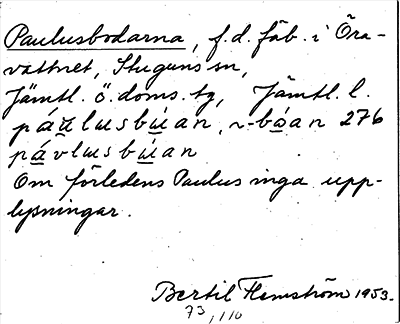 Paulusbodarna, f.d. fäb. i Öra-
vattnet, Stuguns sn,
Jämtl. ö. doms. tg, Jämtl. l.
påålusbu̇an, ~-bȯan 276
påvlusbu̇an
Om förledens Paulus inga upp-
lysningar.
Bertil Flemström 1953.
73, 110